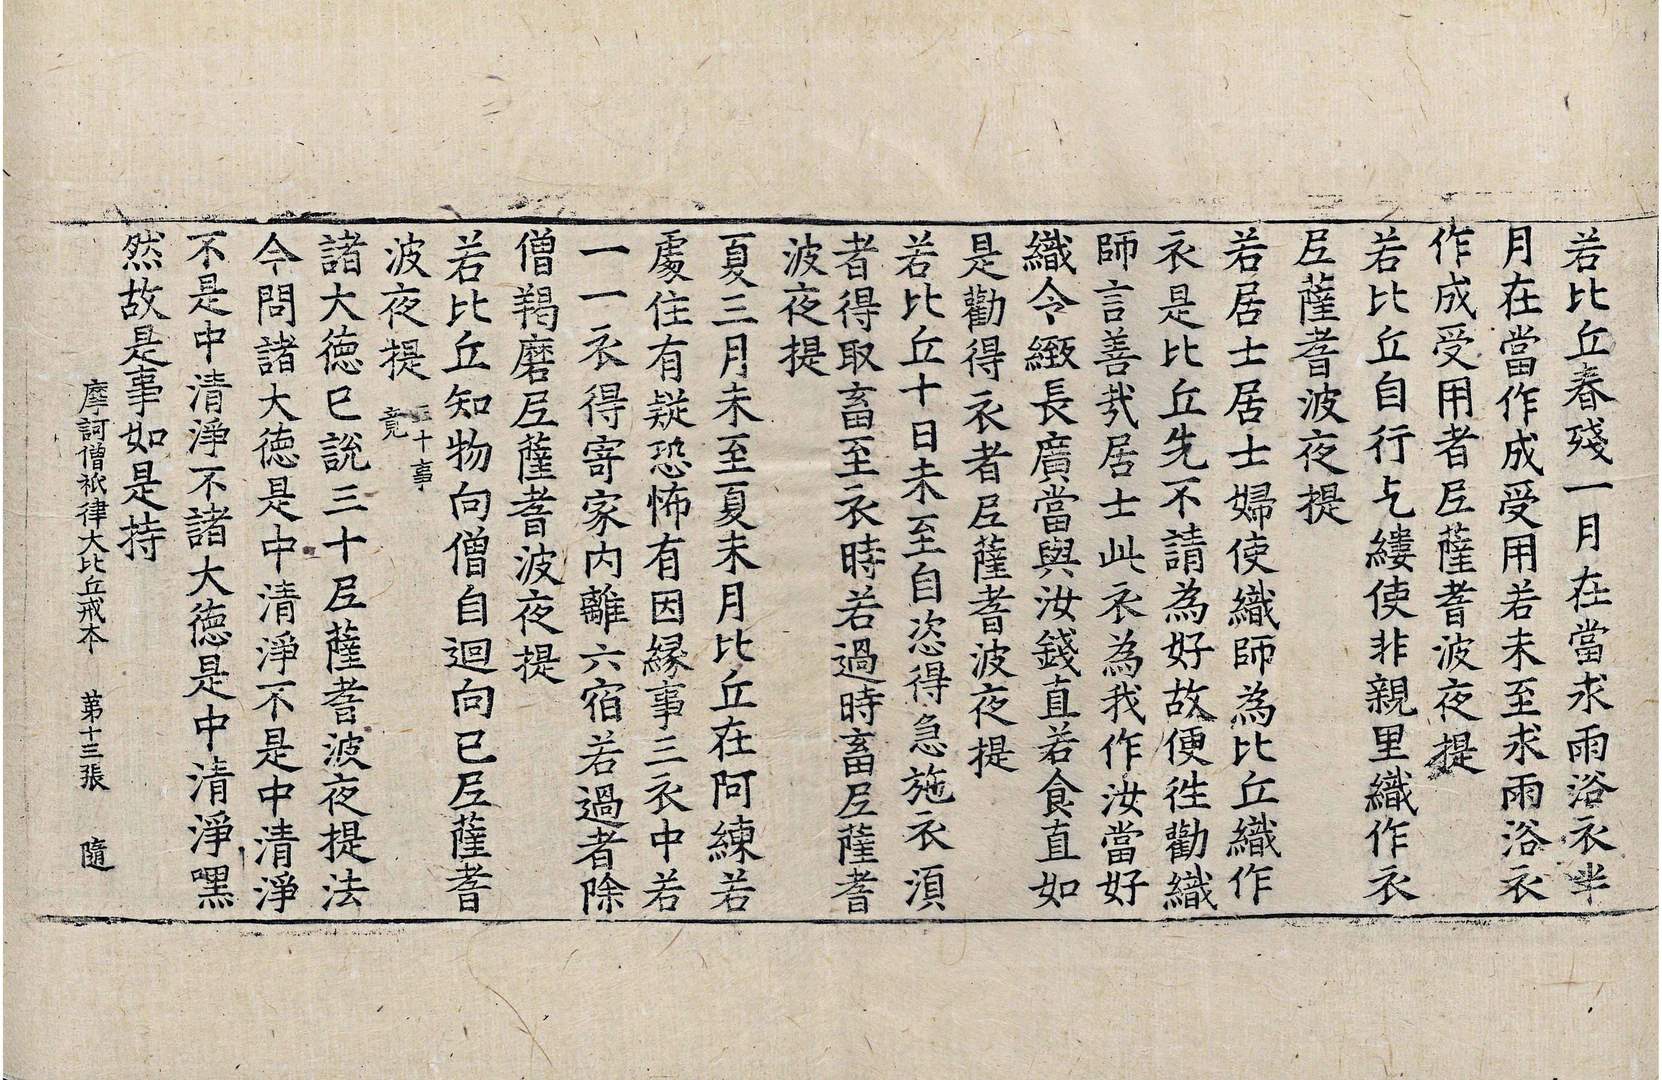 若比丘春殘一月在當求雨浴衣半
月在當作成受用若未至求雨浴衣
作成受用者尼薩耆波夜提
若比丘自行乞縷使非親里織作衣
尼薩耆波夜提
若居士居士婦使織師為比丘織作
衣是比丘先不請為好故便往勸織
師言善哉居士此衣為我作汝當好
織令緻長廣當與汝錢直若食直如
是勸得衣者尼薩耆波夜提
若比丘十日未至自恣得急施衣須
者得取畜至衣時若過時畜尼薩耆
波夜提
夏三月未至夏末月比丘在阿練若
處住有疑恐怖有因緣事三衣中若
一一衣得寄家内離六宿若過者除
僧羯磨尼薩耆波夜提
若比丘知物向僧自迴向已尼薩耆
波夜提 三十事竟
諸大德已說三十尼薩耆波夜提法
今問諸大德是中清淨不是中清淨
不是中清淨不諸大德是中清淨嘿
然故是事如是持
摩訶僧祇律大比丘戒本 第十三張 隨